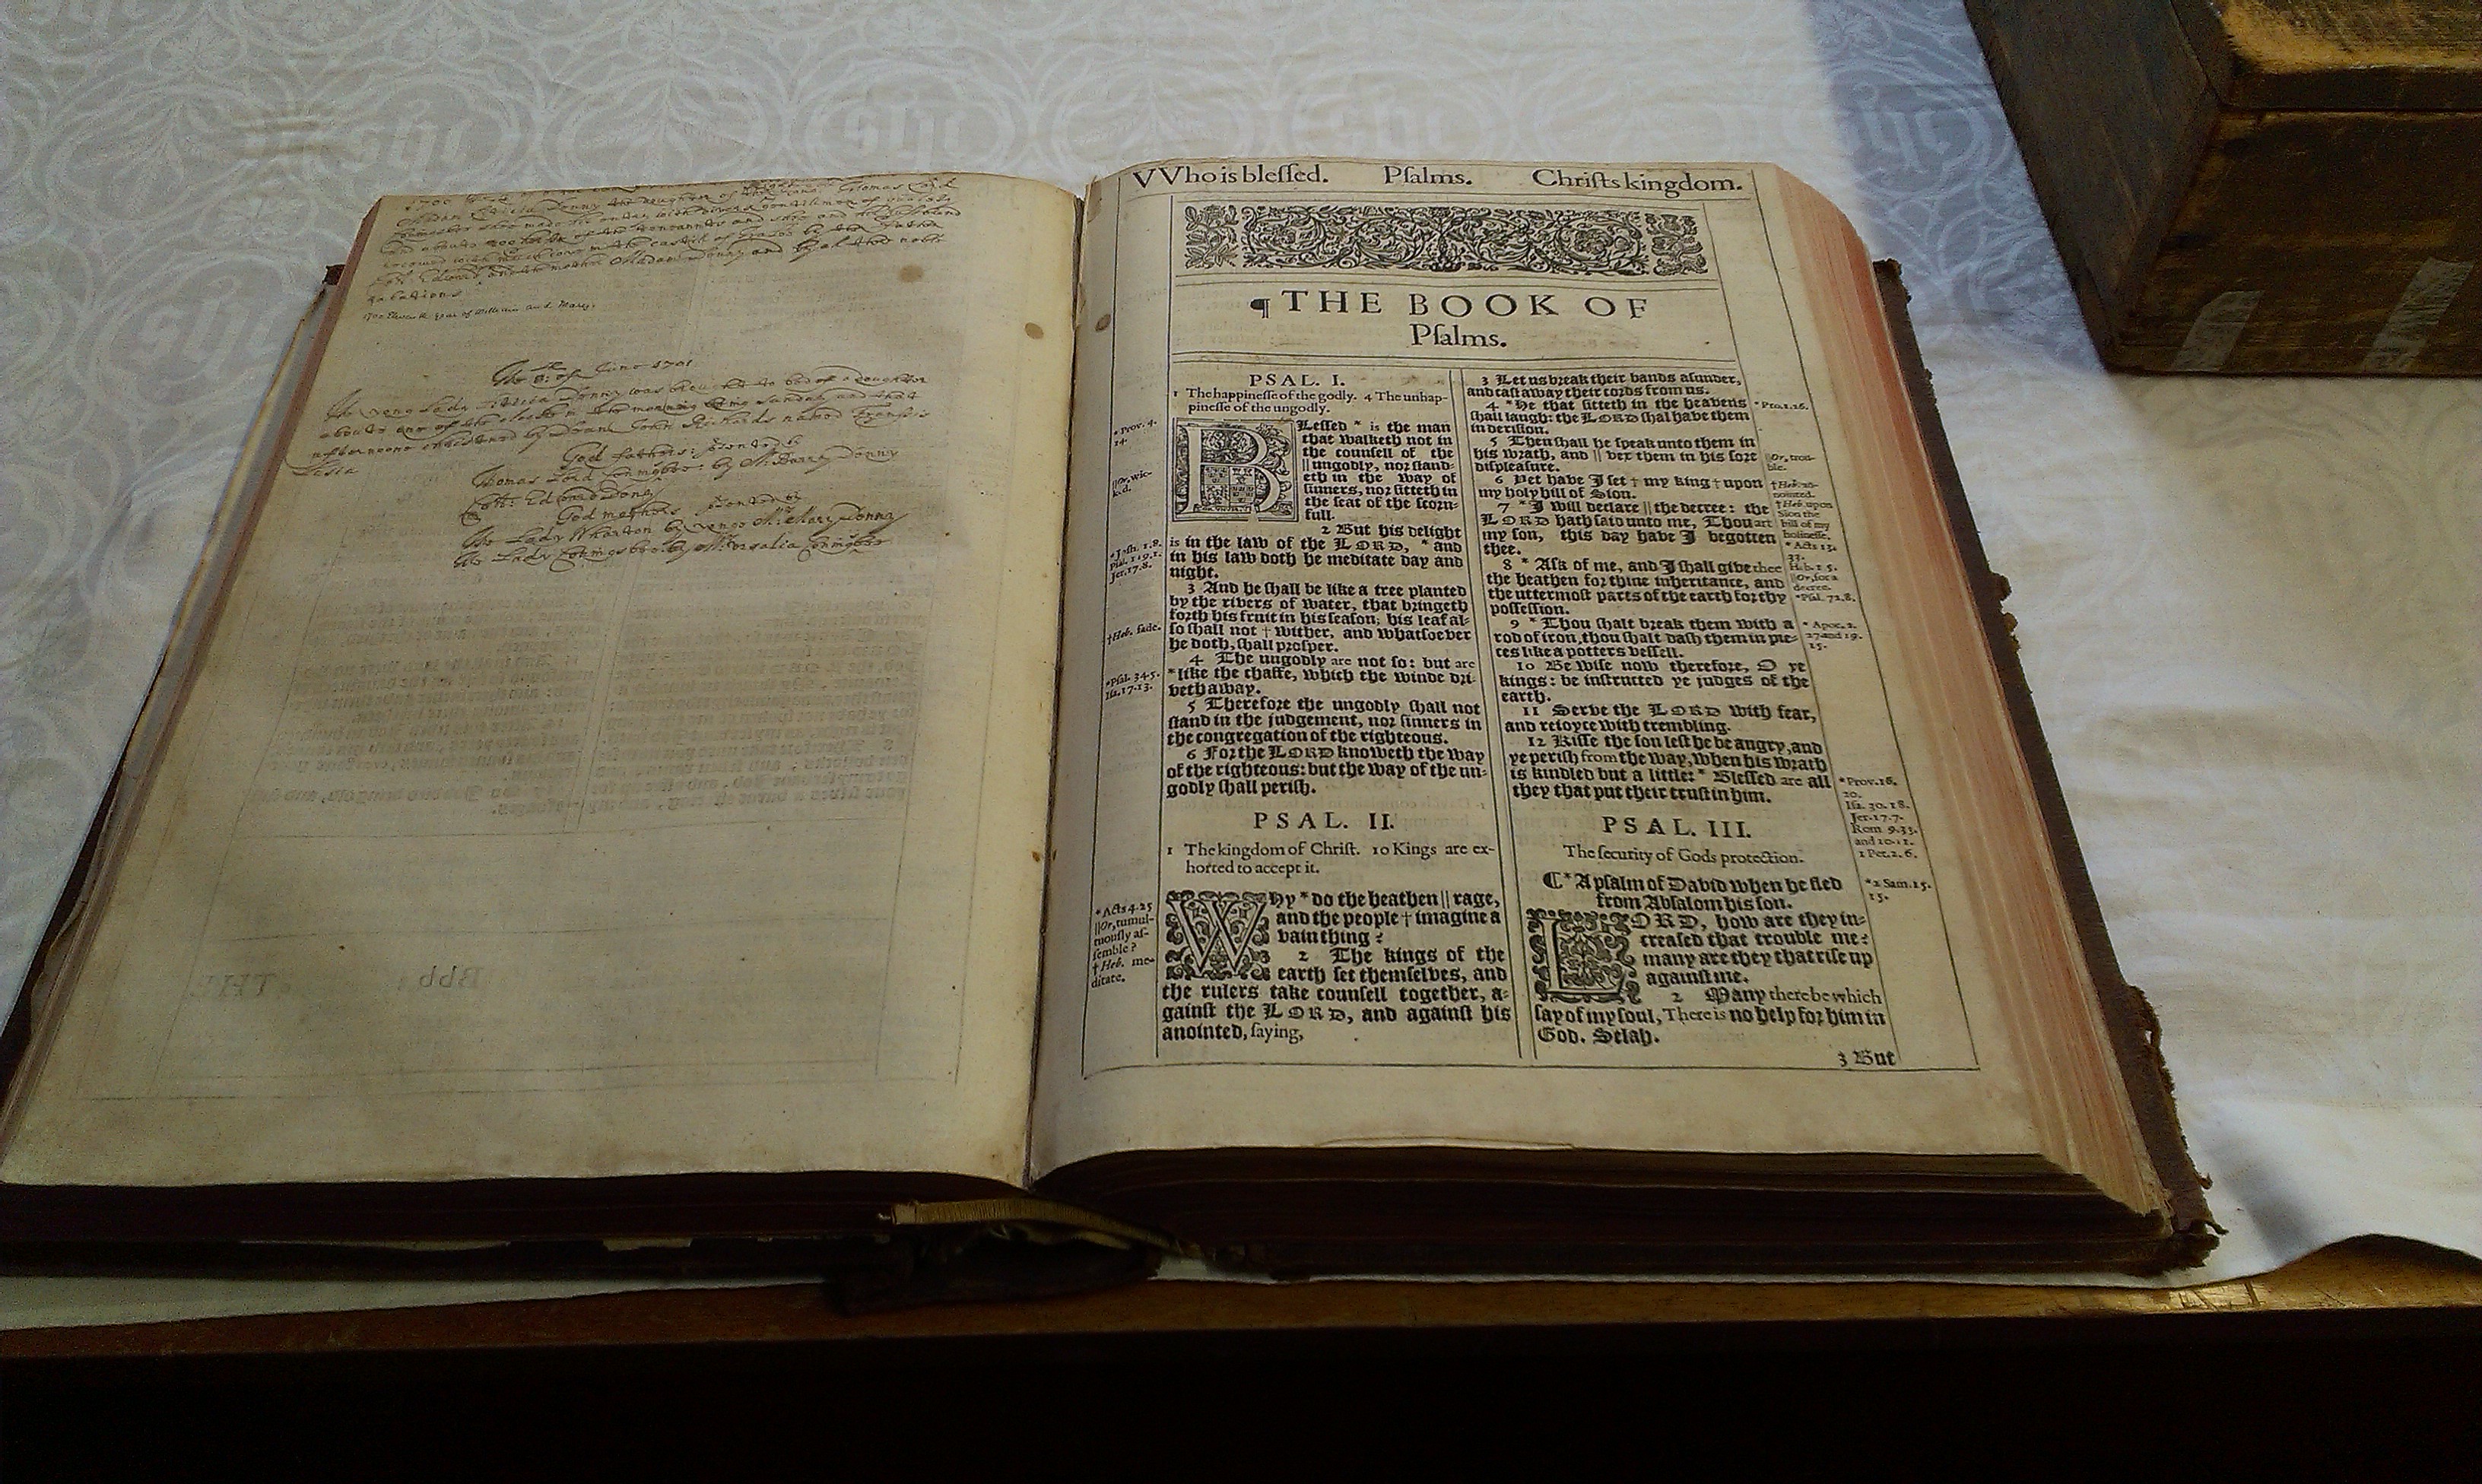 1700
Madam Leticia Donny the doughter of
and aboute
Edward
relations
1700 Eleventh year of William and Mary.
The 8: of June 1701
The yong Lady Donny was brought to bed of a doughter
aboute one of the clock in the morning being sunday and that
afternoone christened by Dean John Richards named
God fathers: by
Thomas Lord by Mr Donny
God mothers by
The Lady Wharton by yonge Mrs Mary Donny
The Lady by Mrs
VVho is blessed. Psalms. Christs kingdom.
¶THE BOOK OF
Psalms.
PSAL. I.
1 The happinesse of the godly. 4 The unhap-
pinesse of the ungodly.
BLessed * is the man
that walketh not in
the counsell of the
|| ungodly, nor stand-
eth in the way of
sinners, nor sitteth in
the seat of the scorn-
full.
2 But his delight
is in the law of the LORD, * and
in his law doth he meditate day and
night.
3 And he shall be like a tree planted
by the rivers of water, that bringeth
forth his fruit in his season; his leaf al-
so shall not † wither, and whatsoever
he doth, shall prosper.
4 The ungodly are not so: but are
* like the chaffe, which the winde dri-
veth away.
5 Therefore the ungodly shall not
stand in the judgement, nor sinners in
the congregation of the righteous.
6 For the LORD knoweth the way
of the righteous: but the way of the un-
godly shall perish.
PSAL. II.
1 The kingdom of Christ. 10 Kings are ex-
horted to accept it.
WHy * do the heathen || rage,
and the people † imagine a
vain thing?
2 The kings of the
earth set themselves, and
the rulers take counsell together, a-
gainst the LORD, and against his
anointed, saying,
* Prov. 4.
14.
|| Or, wic-
ked.
* Josh. 1.8.
Psal. 119.1.
Jer. 17.8.
† Heb. fade.
* Psal. 34.5.
Isa. 17.13.
* Acts 4.25
|| Or, tumul-
tuously as-
semble?
† Heb. me-
ditate.
3 Let us break their bands asunder,
and cast away their cords from us.
4 * He that sitteth in the heavens
shall laugh: the LORD shal have them
in derision.
5 Then shall he speak unto them in
his wrath, and || vex them in his sore
displeasure.
6 Yet have I set † my king † upon
my holy hill of Sion.
7 * I will declare || the decree: the
LORD hath said unto me, Thou art
my son, this day have I begotten
thee.
8 * Ask of me, and I shall give thee
the heathen for thine inheritance, and
the uttermost parts of the earth for thy
possession.
9 * Thou shalt break them with a
rod of iron, thou shalt dash them in pie-
ces like a potters vessell.
10 Be wise now therefore, O ye
kings: be instructed ye judges of the
earth.
11 Serve the LORD with fear,
and rejoyce with trembling.
12 Kisse the son lest he be angry, and
ye perish from the way, when his wrath
is kindled but a little: * Blessed are all
they that put their trust in him.
PSAL. III.
The security of Gods protection.
¶ * A psalm of David when he fled
from Absalom his son.
LORD, how are they in-
creased that trouble me:
many are they that rise up
against me.
2 Many there be which
say of my soul, There is no help for him in
God. Selah.
3 But
* Pro. 1.26.
|| Or, trou-
ble.
† Heb. an-
nointed.
† Heb. upon
Sion the
hill of my
holinesse.
* Acts 13.
33.
Heb. 1.5.
|| Or, for a
decree.
* Psal. 72.8.
* Apoc. 2.
27 and 19.
15.
* Prov. 16.
20.
Isa. 30.18.
Jer. 17.7.
Rom 9.33.
and 10.11.
1 Pet. 2.6.
* 2 Sam. 15.
15.